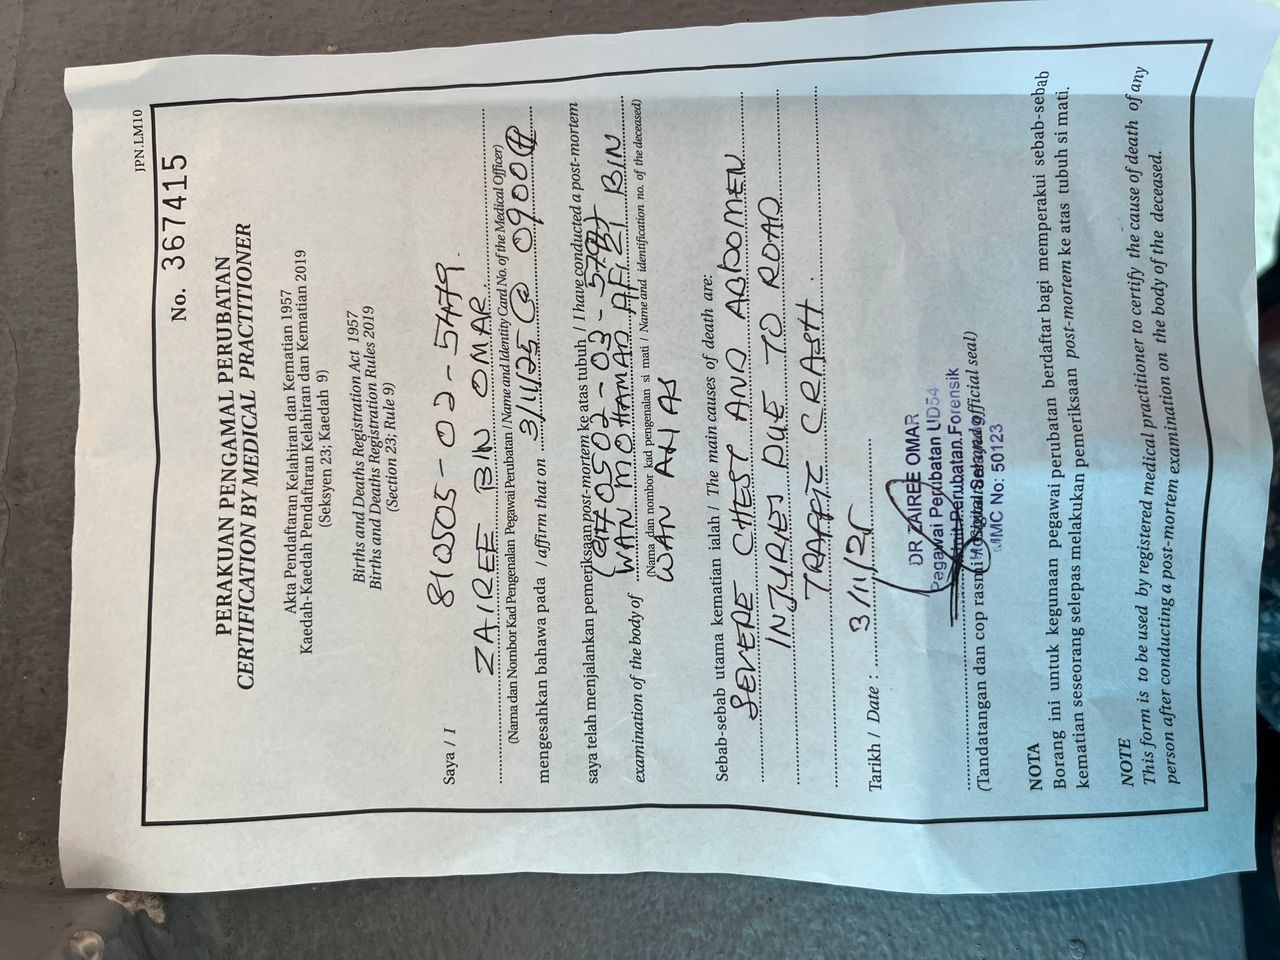 JPN.LM10
No. 367415
PERAKUAN PENGAMAL PERUBATAN
CERTIFICATION BY MEDICAL PRACTITIONER
Akta Pendaftaran Kelahiran dan Kematian 1957
Kaedah-Kaedah Pendaftaran Kelahiran dan Kematian 2019
(Seksyen 23; Kaedah 9)
Births and Deaths Registration Act 1957
Births and Deaths Registration Rules 2019
(Section 23; Rule 9)
810505-02-5479.
Saya / I ZAIREE BIN OMAR
(Nama dan Nombor Kad Pengenalan Pegawai Perubatan / Name and Identity Card No. of the Medical Officer)
mengesahkan bahawa pada / I affirm that on 3/11/25 @ 0900 H
saya telah menjalankan pemeriksaan post-mortem ke atas tubuh / I have conducted a post-mortem
examination of the body of WAN MOHAMAD AFIZI BIN
(Nama dan nombor kad pengenalan si mati / Name and identification no. of the deceased)
WAN ANAS
Sebab-sebab utama kematian ialah / The main causes of death are:
SEVERE CHEST AND ABDOMEN
INJURIES DUE TO ROAD
TRAFFIC CRASH.
Tarikh / Date : 3/11/25
DR ZAIREE OMAR
Pegawai Perubatan UD54
Unit Perubatan Forensik
Hospital Selayang
MMC No: 50123
(Tandatangan dan cop rasmi / Signature and official seal)
NOTA
Borang ini untuk kegunaan pegawai perubatan berdaftar bagi memperakui sebab-sebab
kematian seseorang selepas melakukan pemeriksaan post-mortem ke atas tubuh si mati.
NOTE
This form is to be used by registered medical practitioner to certify the cause of death of any
person after conducting a post-mortem examination on the body of the deceased.